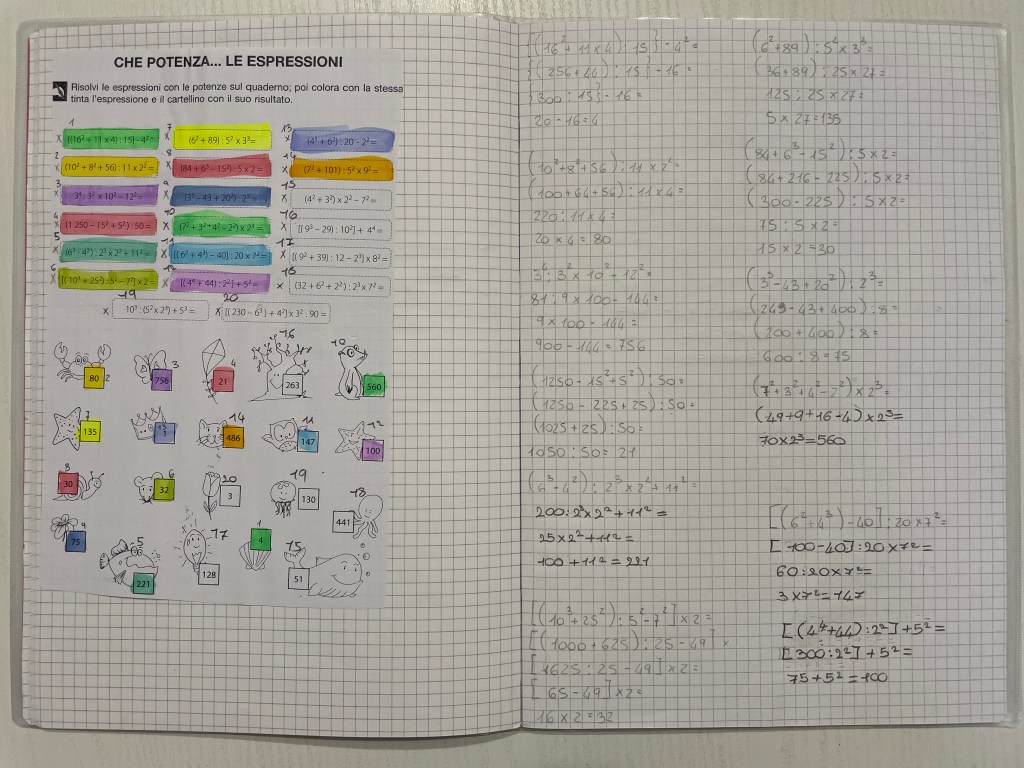 CHE POTENZA... LE ESPRESSIONI
Risolvi le espressioni con le potenze sul quaderno; poi colora con la stessa
tinta l'espressione e il cartellino con il suo risultato.
1
x [(16² + 11 x 4) : 15] - 4² =
2
x (10² + 8² + 56) : 11 x 2² =
3
x 3⁴ : 3² x 10² - 12² =
4
x (1 250 - 15² + 5²) : 50 =
5
x (6³ - 4²) : 2³ x 2² + 11² =
6
x [(10³ + 25²) : 5² - 7²] x 2 =
7
x (6² + 89) : 5² x 3³ =
8
x (84 + 6³ - 15²) : 5 x 2 =
9
x (3⁵ - 43 + 20²) : 2³ =
10
x (7² + 3² + 4² - 2²) x 2³ =
11
x [(6² + 4³) - 40] : 20 x 7² =
12
x [(4⁴ + 44) : 2²] + 5² =
13
x (4³ + 6²) : 20 - 2² =
14
x (7² + 101) : 5² x 9² =
15
x (4² + 3²) x 2² - 7² =
16
x [(9³ - 29) : 10²] + 4⁴ =
17
x [(9² + 39) : 12 - 2³] x 8² =
18
x (32 + 6² + 2²) : 2³ x 7² =
19
x 10³ : (5² x 2³) + 5³ =
20
x [(230 - 6³) + 4²] x 3² : 90 =
80 2
756 3
21 4
16 263
10 560
7 135
13 1
14 486
11 147
12 100
8 30
6 32
20 3
19 130
18 441
9 75
5 221
17 128
1 4
15 51
{(16² + 11 x 4) : 15} - 4² =
{(256 + 44) : 15} - 16 =
{300 : 15} - 16 =
20 - 16 = 4
(10² + 8² + 56) : 11 x 2² =
(100 + 64 + 56) : 11 x 4 =
220 : 11 x 4 =
20 x 4 = 80
3⁴ : 3² x 10² - 12² =
81 : 9 x 100 - 144 =
9 x 100 - 144 =
900 - 144 = 756
(1250 - 15² + 5²) : 50 =
(1250 - 225 + 25) : 50 =
(1025 + 25) : 50 =
1050 : 50 = 21
(6³ - 4²) : 2³ x 2² + 11² =
200 : 2³ x 2² + 11² =
25 x 2² + 11² =
100 + 11² = 221
[(10³ + 25²) : 5² - 7²] x 2 =
[(1000 + 625) : 25 - 49] x
[1625 : 25 - 49] x 2 =
[65 - 49] x 2 =
16 x 2 = 32
(6² + 89) : 5² x 3³ =
(36 + 89) : 25 x 27 =
125 : 25 x 27 =
5 x 27 = 135
(84 + 6³ - 15²) : 5 x 2 =
(84 + 216 - 225) : 5 x 2 =
(300 - 225) : 5 x 2 =
75 : 5 x 2 =
15 x 2 = 30
(3⁵ - 43 + 20²) : 2³ =
(243 - 43 + 400) : 8 =
(200 + 400) : 8 =
600 : 8 = 75
(7² + 3² + 4² - 2²) x 2³ =
(49 + 9 + 16 - 4) x 2³ =
70 x 2³ = 560
[(6² + 4³) - 40] : 20 x 7² =
[100 - 40] : 20 x 7² =
60 : 20 x 7² =
3 x 7² = 147
[(4⁴ + 44) : 2²] + 5² =
[300 : 2²] + 5² =
75 + 5² = 100